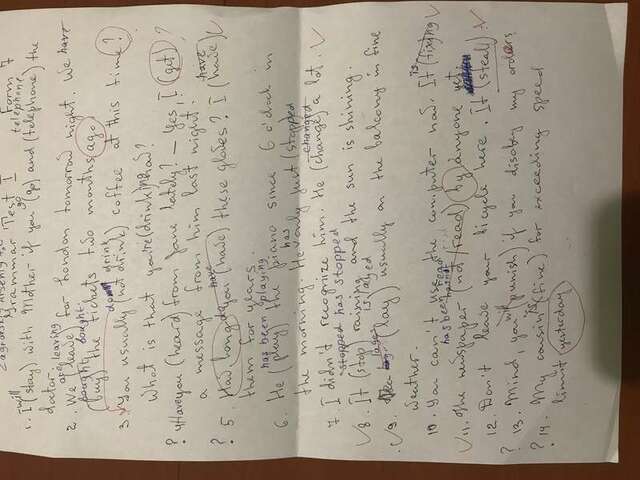 Grammar Test I Form 7
will go telephone
1. I (stay) with mother if you (go) and (telephone) the
doctor.
are leaving
2. We (leave) for London tomorrow night. We have
bought
(buy) the tickets two months ago.
don't drink
3. You usually (not drink) coffee at this time?
What is that you're (drink)
? 4. Have you (heard) from Jane lately? – Yes, I (get)
a message from him last night.
have
? 5. How long do you (have) these gloves? I (have)
them for years.
has been playing
6. He (play) the piano since 6 o'clock in
the morning. He only just (stopped
has
changed
7. I didn't recognize him. He (change) a lot.
stopped has stopped
8. It (stop) raining and the sun is shining.
is layed
9. (lay) usually on the balcony in fine
weather.
is
10. You can't use the computer now. It (fixing)
has been read
11. The newspaper (not read) by anyone yet
12. Don't leave your bicycle here. It (steal).
will
? 13. Mind, you (punish) if you disobey my orders
is
? 14. My cousin (fine) for exceeding speed
limit yesterday